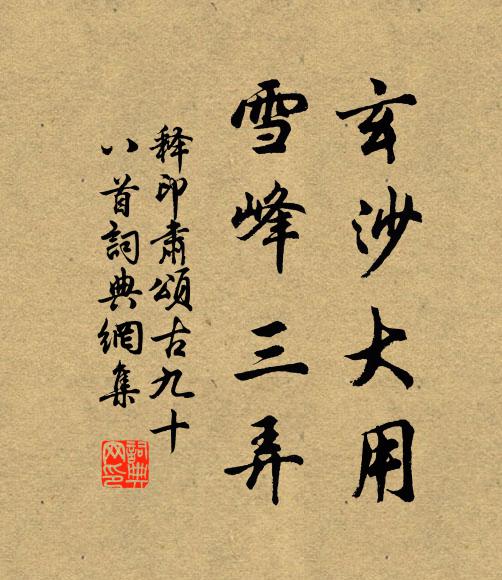 玄沙大用
雪峰三弄
释印肃颂古九十
八首詞典網集
詞典网印